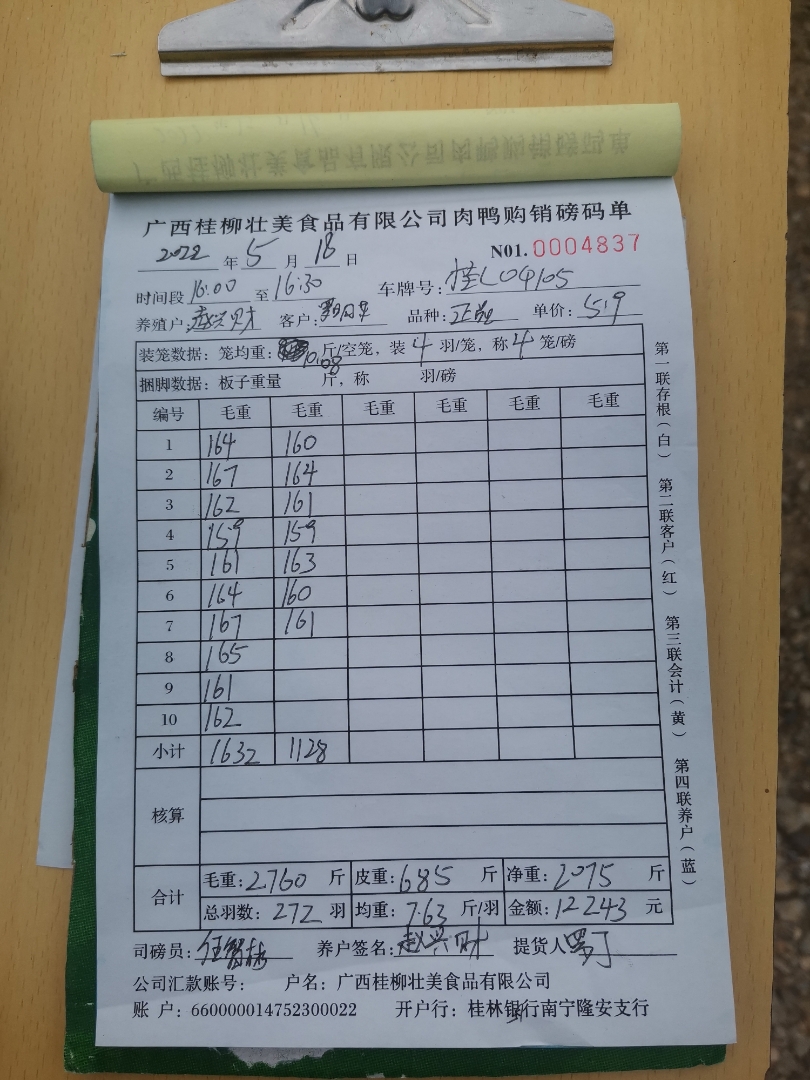 广西桂柳壮美食品有限公司肉鸭购销磅码单
2022 年 5 月 18 日 N01. 0004837
时间段 16:00 至 16:30 车牌号: 桂L04105
养殖户: 赵兴财 客户: 品种: 正品 单价: 5.9
装笼数据: 笼均重: 10.08 斤/空笼, 装 4 羽/笼, 称 4 笼/磅
捆脚数据: 板子重量 斤, 称 羽/磅
编号 毛重 毛重 毛重 毛重 毛重 毛重
1 164 160
2 167 164
3 162 161
4 159 159
5 161 163
6 164 160
7 167 161
8 165
9 161
10 162
小计 1632 1128
核算
合计
毛重: 2760 斤 皮重: 685 斤 净重: 2075 斤
总羽数: 272 羽 均重: 7.63 斤/羽 金额: 12243 元
司磅员: 养户签名: 赵兴财 提货人
公司汇款账号: 户名: 广西桂柳壮美食品有限公司
账 户: 660000014752300022 开户行: 桂林银行南宁隆安支行
第一联存根(白) 第二联客户(红) 第三联会计(黄) 第四联养户(蓝)